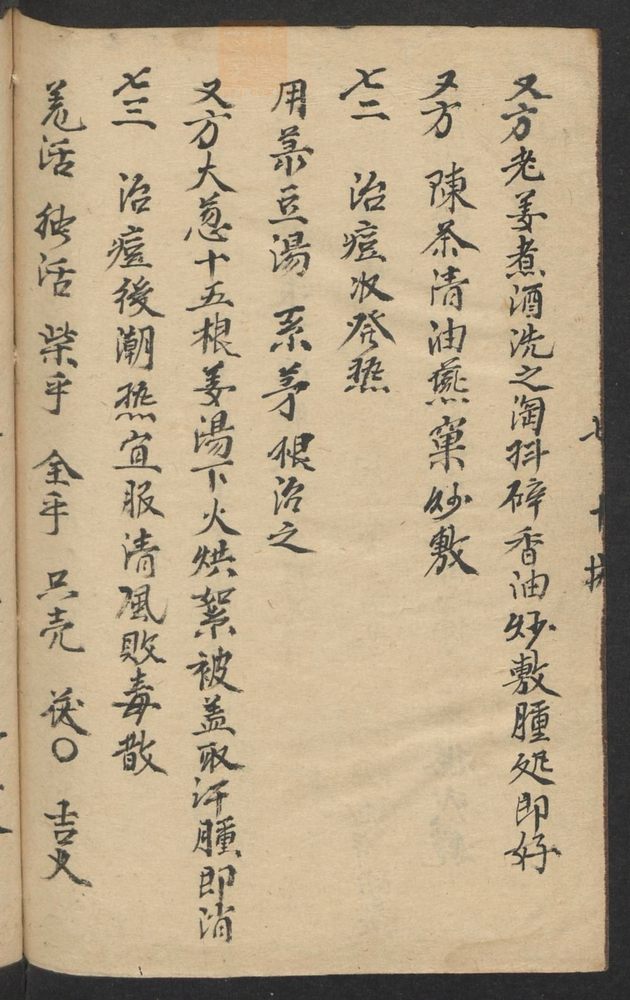 又方老姜煮酒洗之淘抖碎香油炒敷腫処即好
又方 陳茶清油燕窠炒敷
七二 治痘收發热
用菉豆湯 系茅根治之
又方大葱十五根姜湯下火烘絮被盖取汗腫即消
七三 治痘後潮热宜服清風敗毒散
羌活 独活 柴乎 全乎 只壳 茯〇 吉又